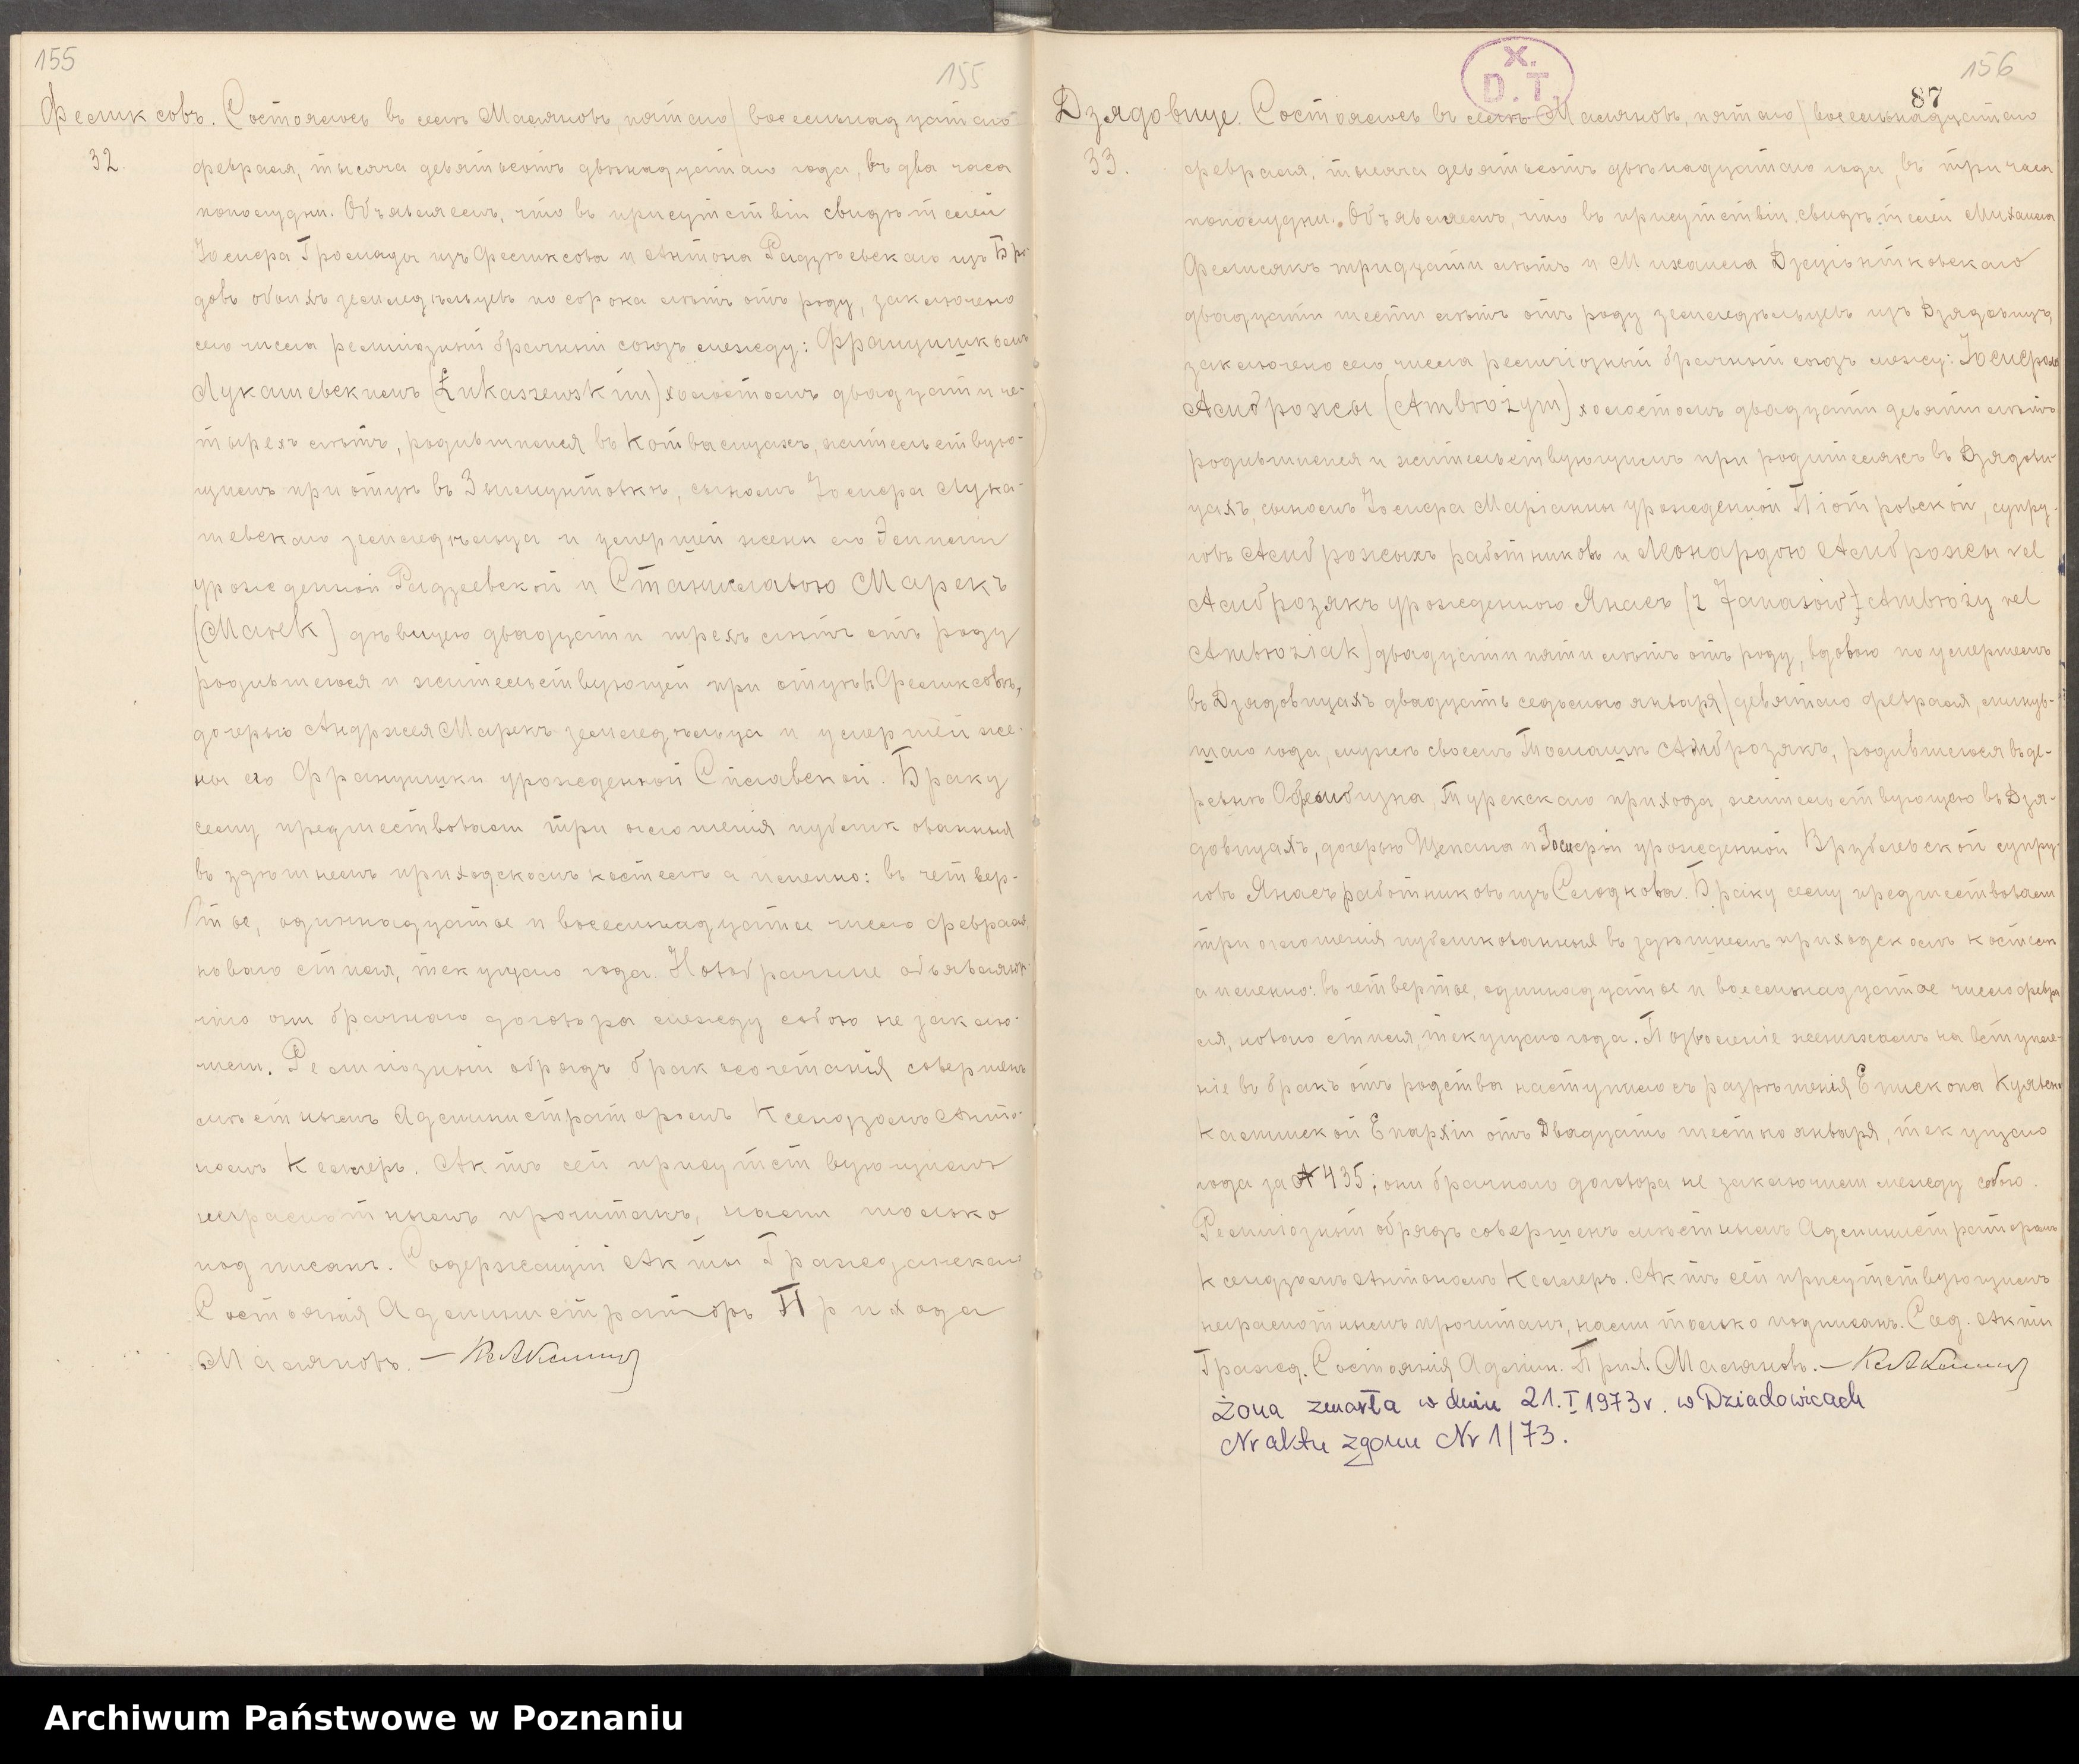 155
155
Феликсовъ. Состоялось въ селѣ Маляновѣ, пятаго/восемнадцатаго
32.
февраля, тысяча девятьсотъ двѣнадцатаго года, въ два часа
пополудни. Объявляемъ, что въ присутствіи свидѣтелей
Іосифа Громады изъ Феликсова и Антона Радзѣевскаго изъ Бро-
довъ обоихъ земледѣльцевъ по сорока лѣтъ отъ роду, заключено
сего числа религіозный брачный союзъ между: Францишкомъ
Лукашевскимъ (Łukaszewskim) холостомъ двадцати че-
тырехъ лѣтъ, родившимся въ жительствую-
щимъ при отцѣ въ Зыгмунтовкѣ, сыномъ Іосифа Лука-
шевскаго земледѣльца и умершей жены его
урожденной Радзеевской и Станиславою Марекъ
(Marek) дѣвицею двадцати трехъ лѣтъ отъ роду
родившеюся и жительствующей при отцѣ въ Феликсовѣ,
дочерью Андржея Марекъ земледѣльца и умершей же-
ны его Францишки урожденной Сплавской. Браку
сему предшествовали три оглашенія публикованныя
въ здѣшнемъ приходскомъ костелѣ а именно: въ четвер-
тое, одиннадцатое и восемнадцатое число февраля,
новаго стиля, текущаго года. Новобрачные объявляютъ
что они брачнаго договора между собою не заклю-
чили. Религіозный обрядъ бракосочетанія совершенъ
мѣстнымъ Администраторомъ Ксендзомъ Анто-
номъ Келлеръ. Актъ сей присутствующимъ
неграмотнымъ прочитанъ, нами только
подписанъ. Содержащій Акты Гражданскаго
Состоянія Администраторъ Прихода
Маляновъ. —
X.
D. T.
156
87
Дзядовице. Состоялось въ селѣ Маляновѣ, пятаго/восемнадцатаго
33.
февраля, тысяча девятьсотъ двѣнадцатаго года, въ три часа
пополудни. Объявляемъ, что въ присутствіи свидѣтелей Михаила
Фелисякъ тридцати лѣтъ и Михаила
двадцати шести лѣтъ отъ роду земледѣльцевъ изъ Дзядовицъ,
заключено сего числа религіозный брачный союзъ межу: Іосифомъ
Амброжы (Ambroży m) холостомъ двадцати девяти лѣтъ
родившимся и жительствующимъ при родителяхъ въ Дзядови-
цахъ, сыномъ Іосифа Маріанны урожденной Піотровской, супру-
говъ Амброжыхъ работниковъ и Леонардою Амброжы vel
Амброзякъ урожденною Янасъ (z Janasów) Ambroży vel
Ambroziak) двадцати пяти лѣтъ отъ роду, вдовою по умершемъ
въ Дзядовицахъ двадцать седьмого января/девятаго февраля, минув-
шаго года, мужѣ своемъ Томашѣ Амброзякъ, родившеюся въ де-
ревнѣ Турекскаго прихода, жительствующею въ Дзя-
довицахъ, дочерью Щепана и Іосифы урожденной Врублевской супру-
говъ Янасъ работниковъ изъ Слодкова. Браку сему предшествовали
три оглашенія публикованныя въ здѣшнемъ приходскомъ костелѣ
а именно: въ четвертое, одиннадцатое и восемнадцатое число февра-
ля, новаго стиля, текущаго года. Позволеніе женихамъ на вступле-
ніе въ бракъ отъ родства наступило съ разрѣшенія Епископа Куявско-
Калишской Епархіи отъ Двадцать шестаго января, текущаго
года за № 435; они брачнаго договора не заключили между собою.
Религіозный обрядъ совершенъ мѣстнымъ Администраторомъ
Ксендзомъ Антономъ Келлеръ. Актъ сей присутствующимъ
неграмотнымъ прочитанъ, нами только подписанъ. Сод. Акты
Гражд. Состоянія Админ. Прих. Маляновъ. —
Żona zmarła w dniu 21.I 1973 r. w Dziadowicach
Nr aktu zgonu Nr 1/73.
Archiwum Państwowe w Poznaniu